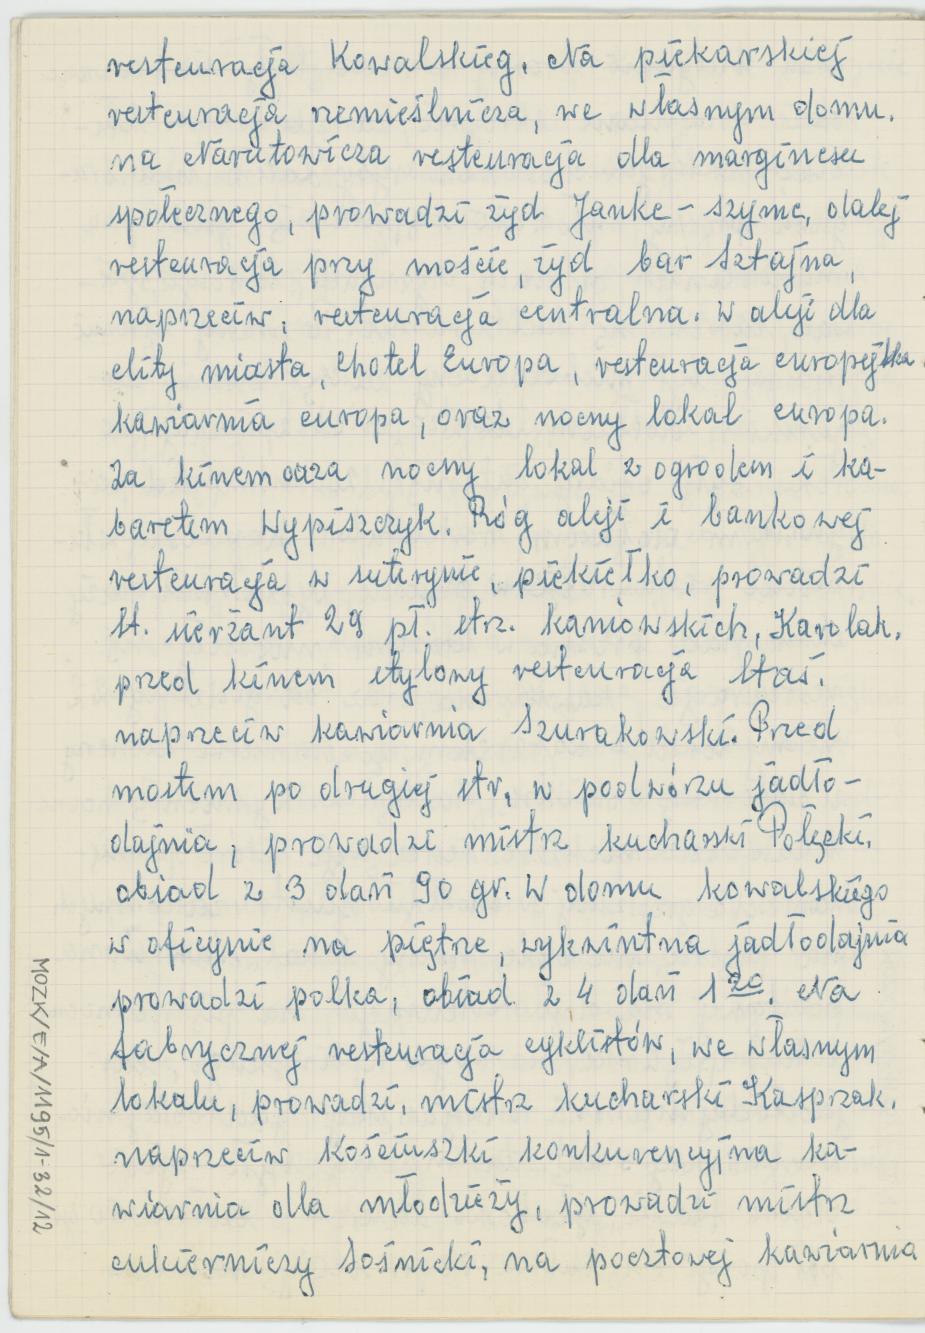 resteuracja Kowalskieg. Na piekarskiej
resteuracja rzemieślnicza, we własnym domu.
na Narutowicza resteuracja dla marginesu
społecznego, prowadzi żyd Janke-szyme, dalej
resteuracja przy moście, żyd bar Sztajna,
naprzeciw, resteuracja centralna. W aleji dla
elity miasta, chotel Europa, resteuracja europejska
kawiarnia europa, oraz nocny lokal europa.
Za kinem oaza nocny lokal z ogrodem i ka-
baretem Wypiszczyk. Róg aleji i bankowej
resteuracja w suterynie, piekiełko, prowadzi
st. sierżant 29 pł. str. kaniowskich, Karolak.
przed kinem stylowy resteuracja Staś.
naprzeciw kawiarnia Szurakowski. Przed
mostem po drugiej str, w podwórzu jadło-
dajnia, prowadzi mistrz kucharski Połęcki.
obiad z 3 dań 90 gr. W domu kowalskiego
w oficynie na piętrze, wykwintna jadłodajnia
prowadzi polka, obiad z 4 dań 1 20. Na
fabrycznej resteuracja cyklistów, we własnym
lokalu, prowadzi, mistrz kucharski Kasprzak.
naprzeciw Kościuszki konkurencyjna ka-
wiarnia dla młodzieży, prowadzi mistrz
cukierniczy Sośnicki, na pocztowej kawiarnia
MOZK/E/A/1195/1-32/12